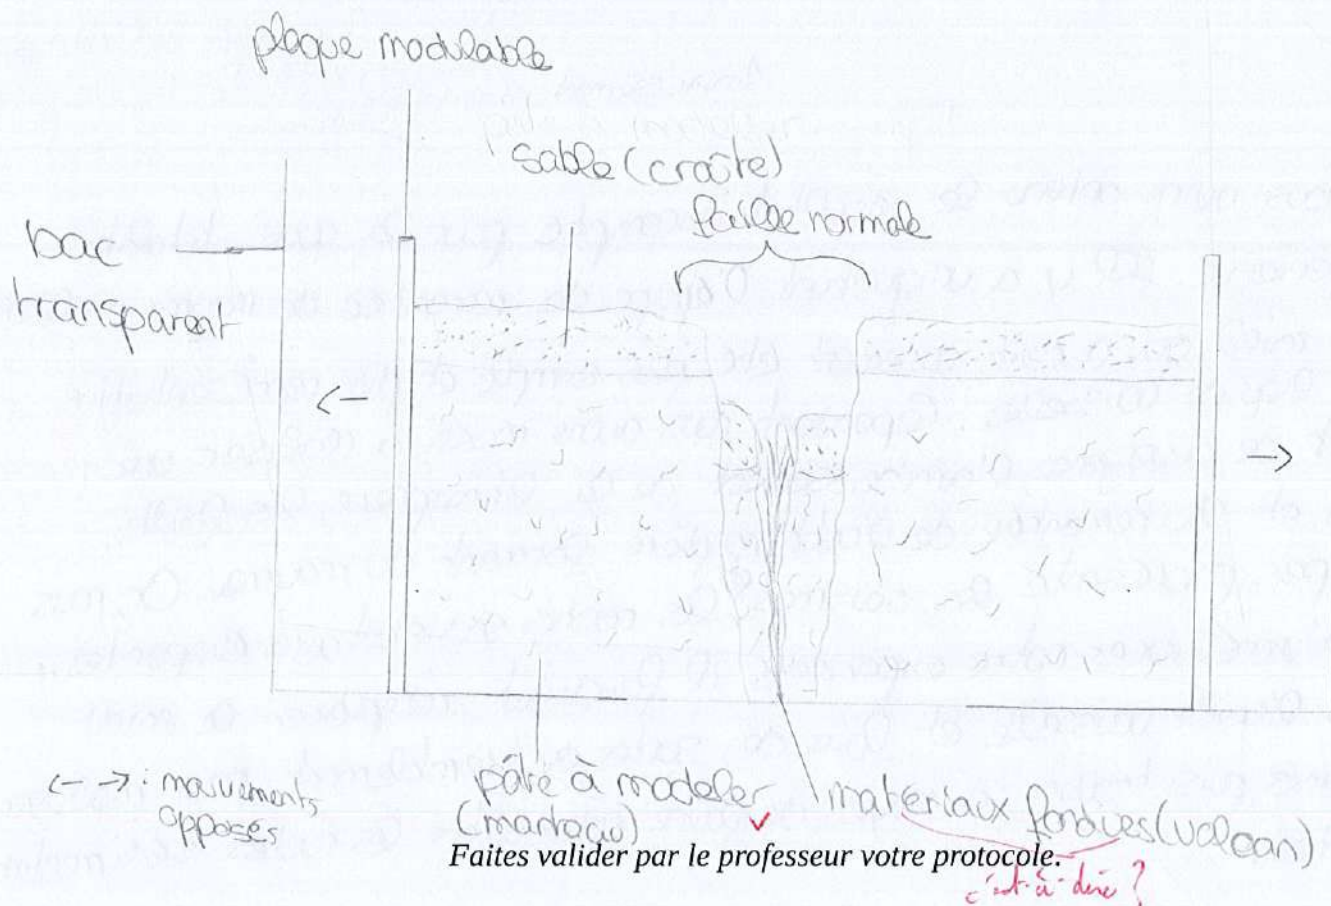 plaque modulable
sable (croûte)
faille normale
bac
transparent
← → : mouvements
opposés
pâte à modeler
(manteau)
matériaux fondues (volcan)
Faites valider par le professeur votre protocole.
c'est-à-dire ?